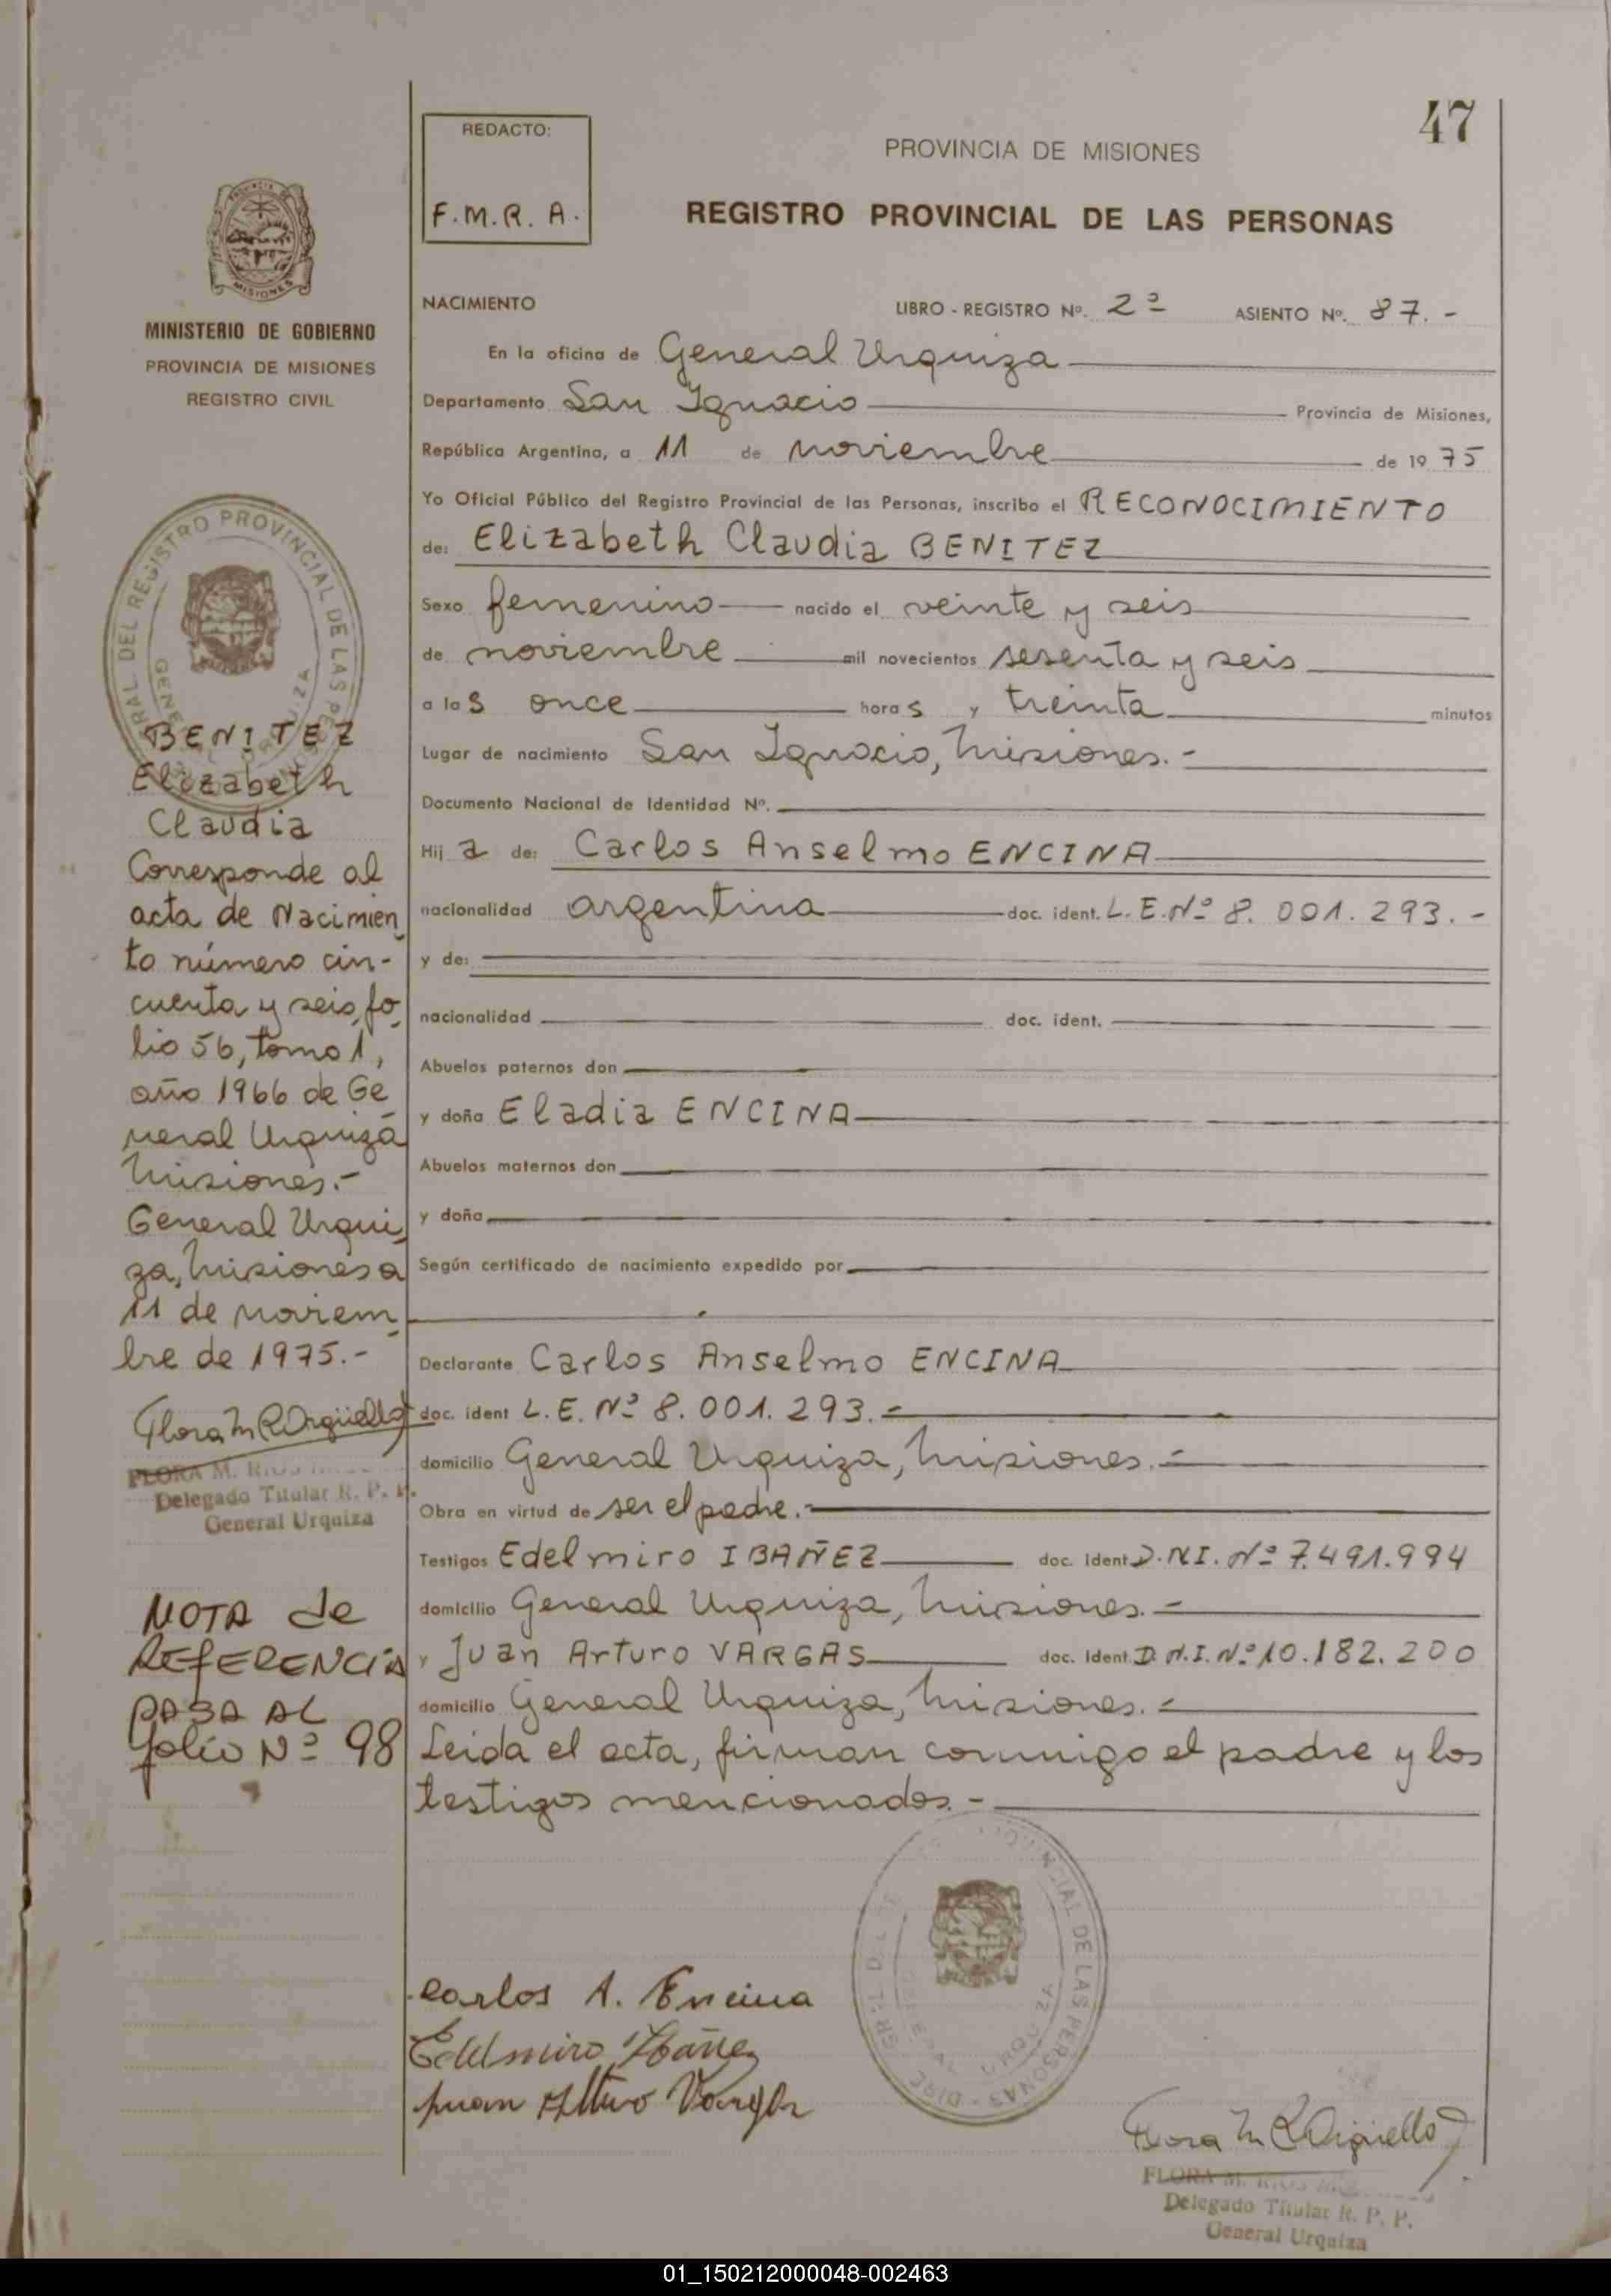 47
REDACTO:
F.M.R. A.
PROVINCIA DE MISIONES
REGISTRO PROVINCIAL DE LAS PERSONAS
MISIONES
MINISTERIO DE GOBIERNO
PROVINCIA DE MISIONES
REGISTRO CIVIL
NACIMIENTO LIBRO - REGISTRO Nº. 2º ASIENTO Nº. 87.-
En la oficina de General Urquiza
Departamento San Ignacio Provincia de Misiones,
República Argentina, a 11 de noviembre de 1975
Yo Oficial Público del Registro Provincial de las Personas, inscribo el RECONOCIMIENTO
de: Elizabeth Claudia BENITEZ
Sexo femenino nacido el veinte y seis
de noviembre mil novecientos sesenta y seis
a las once horas y treinta minutos
Lugar de nacimiento San Ignacio, Misiones.-
Documento Nacional de Identidad Nº.
Hija de: Carlos Anselmo ENCINA
nacionalidad argentina doc. ident. L.E.Nº 8.001.293.-
y de:
nacionalidad doc. ident.
Abuelos paternos don
y doña Eladia ENCINA
Abuelos maternos don
y doña
Según certificado de nacimiento expedido por
Declarante Carlos Anselmo ENCINA
doc. ident L.E. Nº 8.001.293.-
domicilio General Urquiza, Misiones.-
Obra en virtud de ser el padre.-
Testigos Edelmiro IBAÑEZ doc. ident D.N.I. Nº 7.491.994
domicilio General Urquiza, Misiones.-
y Juan Arturo VARGAS doc. ident. D.N.I. Nº 10.182.200
domicilio General Urquiza, Misiones.-
Leida el acta, firman conmigo el padre y los
testigos mencionados.-
REGISTRO PROVINCIAL DE LAS
BENITEZ
Elizabeth
Claudia
Corresponde al
acta de Nacimien
to número cin-
cuenta y seis, fo
lio 56, tomo 1,
año 1966 de Ge
neral Urquiza
Misiones.-
General Urqui
za, Misiones a
11 de noviem
bre de 1975.-
Flora M R Argüello
FLORA M.
Delegado Titular R. P. P.
General Urquiza
NOTA de
REFERENCIA
PASA AL
folio Nº 98
Carlos A. Encina
Edelmiro Ibáñez
Juan Arturo Vargas
DE LAS PERSONAS
Flora M R Argüello
FLORA M.
Delegado Titular R. P. P.
General Urquiza
01_150212000048-002463